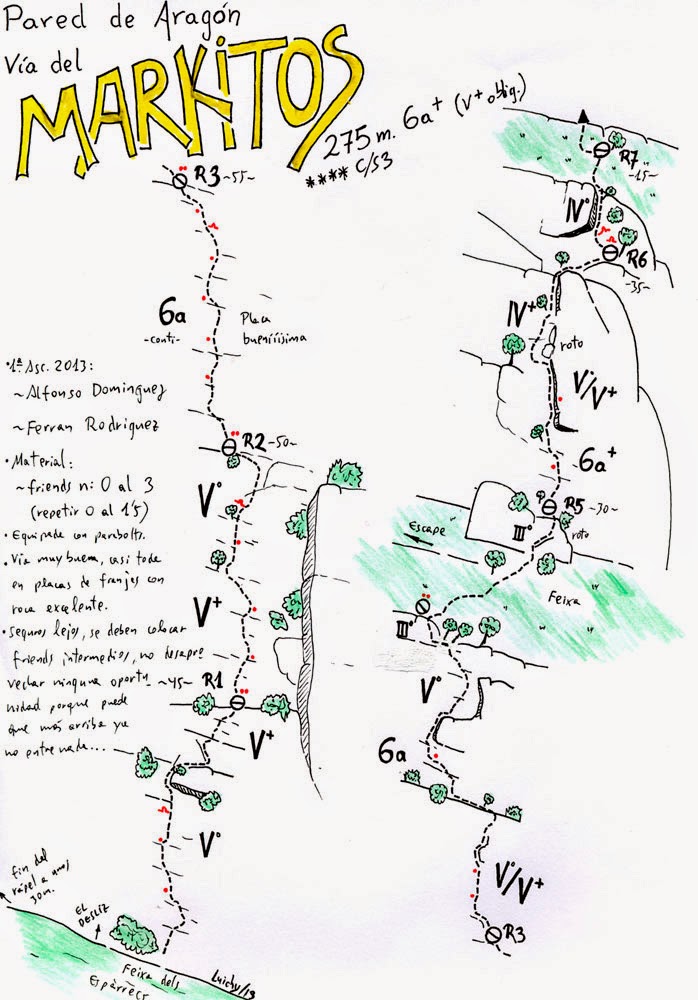 Pared de Aragón
Vía del
MARKITOS
275 m. 6a+ (V+ oblig.)
**** C/S3
R3 ~55~
6a
-conti-
Placa
bueníííisima
• 1ª Asc. 2013:
~ Alfonso Dominguez
~ Ferran Rodriguez
• Material:
~ friends n: 0 al 3
(repetir 0 al 1'5)
• Equipada con parabolts.
• Vía muy buena, casi toda
en placas de franjes con
roca excelente.
• Seguros lejos, se deben colocar
friends intermedios, no desapro
vechar ninguna oportu
nidad porque puede
que más arriba ya
no entre nada...
R2 ~50~
V°
V+
~45~ R1
V+
V°
fin del
rápel a unos
30m.
EL
DESLIZ
Feixa dels
Espàrrecs
Luichy/13
R7
~15~
IV°
R6
~35~
IV+
roto
V°/V+
6a+
R5 ~30~
III°
roto
Escape
Feixa
III°
V°
6a
V°/V+
R3